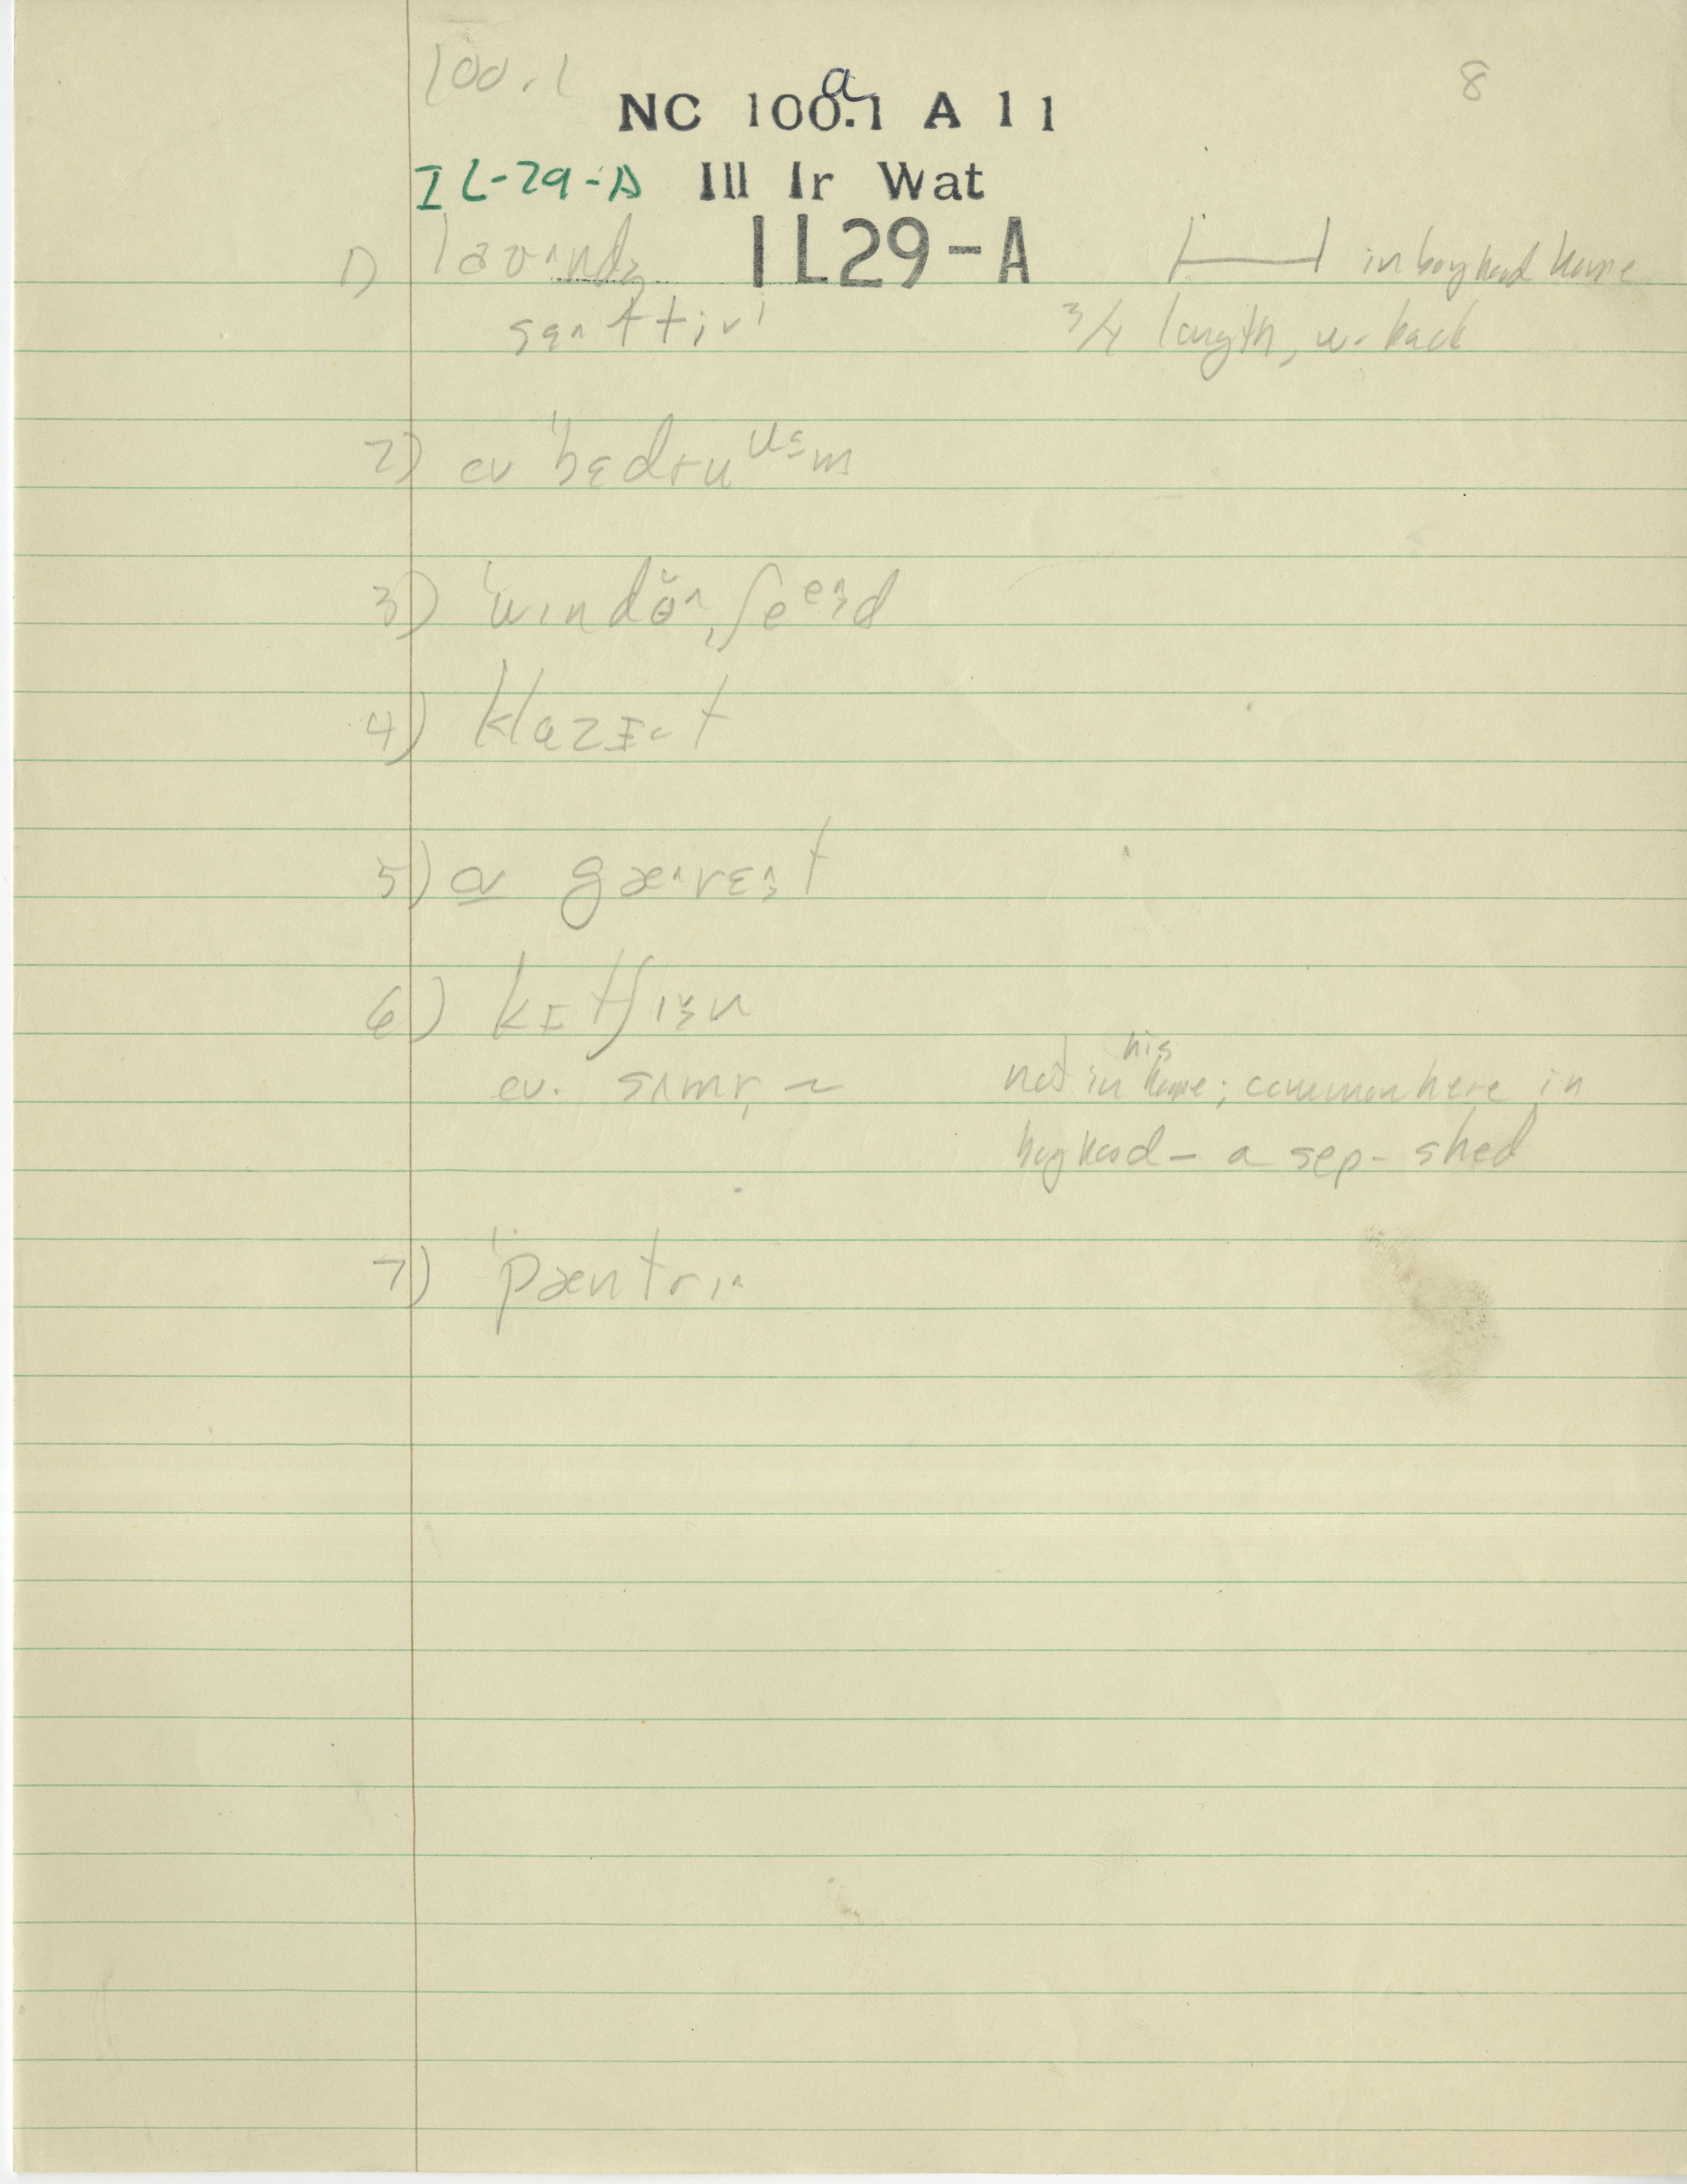 100.1
8
NC 100a.1 A 11
IL-29-A Ill Ir Wat
1) IL29-A in boyhood home
3/4 length, w. back
2) ə ˈbɛdru
3) ˈwɪndə
4) klazɪ˂t
5) ə gæ˄rɛ˒t
6) kɪtʃɪ˒n
sʌmɚ ~ not in his home; common here in
boyhood – a sep. shed
7) ˈpæntrɪ˄